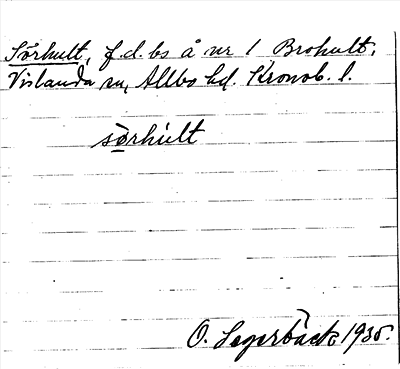 Sörhult, f.d. bs å nr 1 Brohult,
Vislanda sn, Allbo hd. Kronob. l.
sörhult
O. Segerbäck 1935.